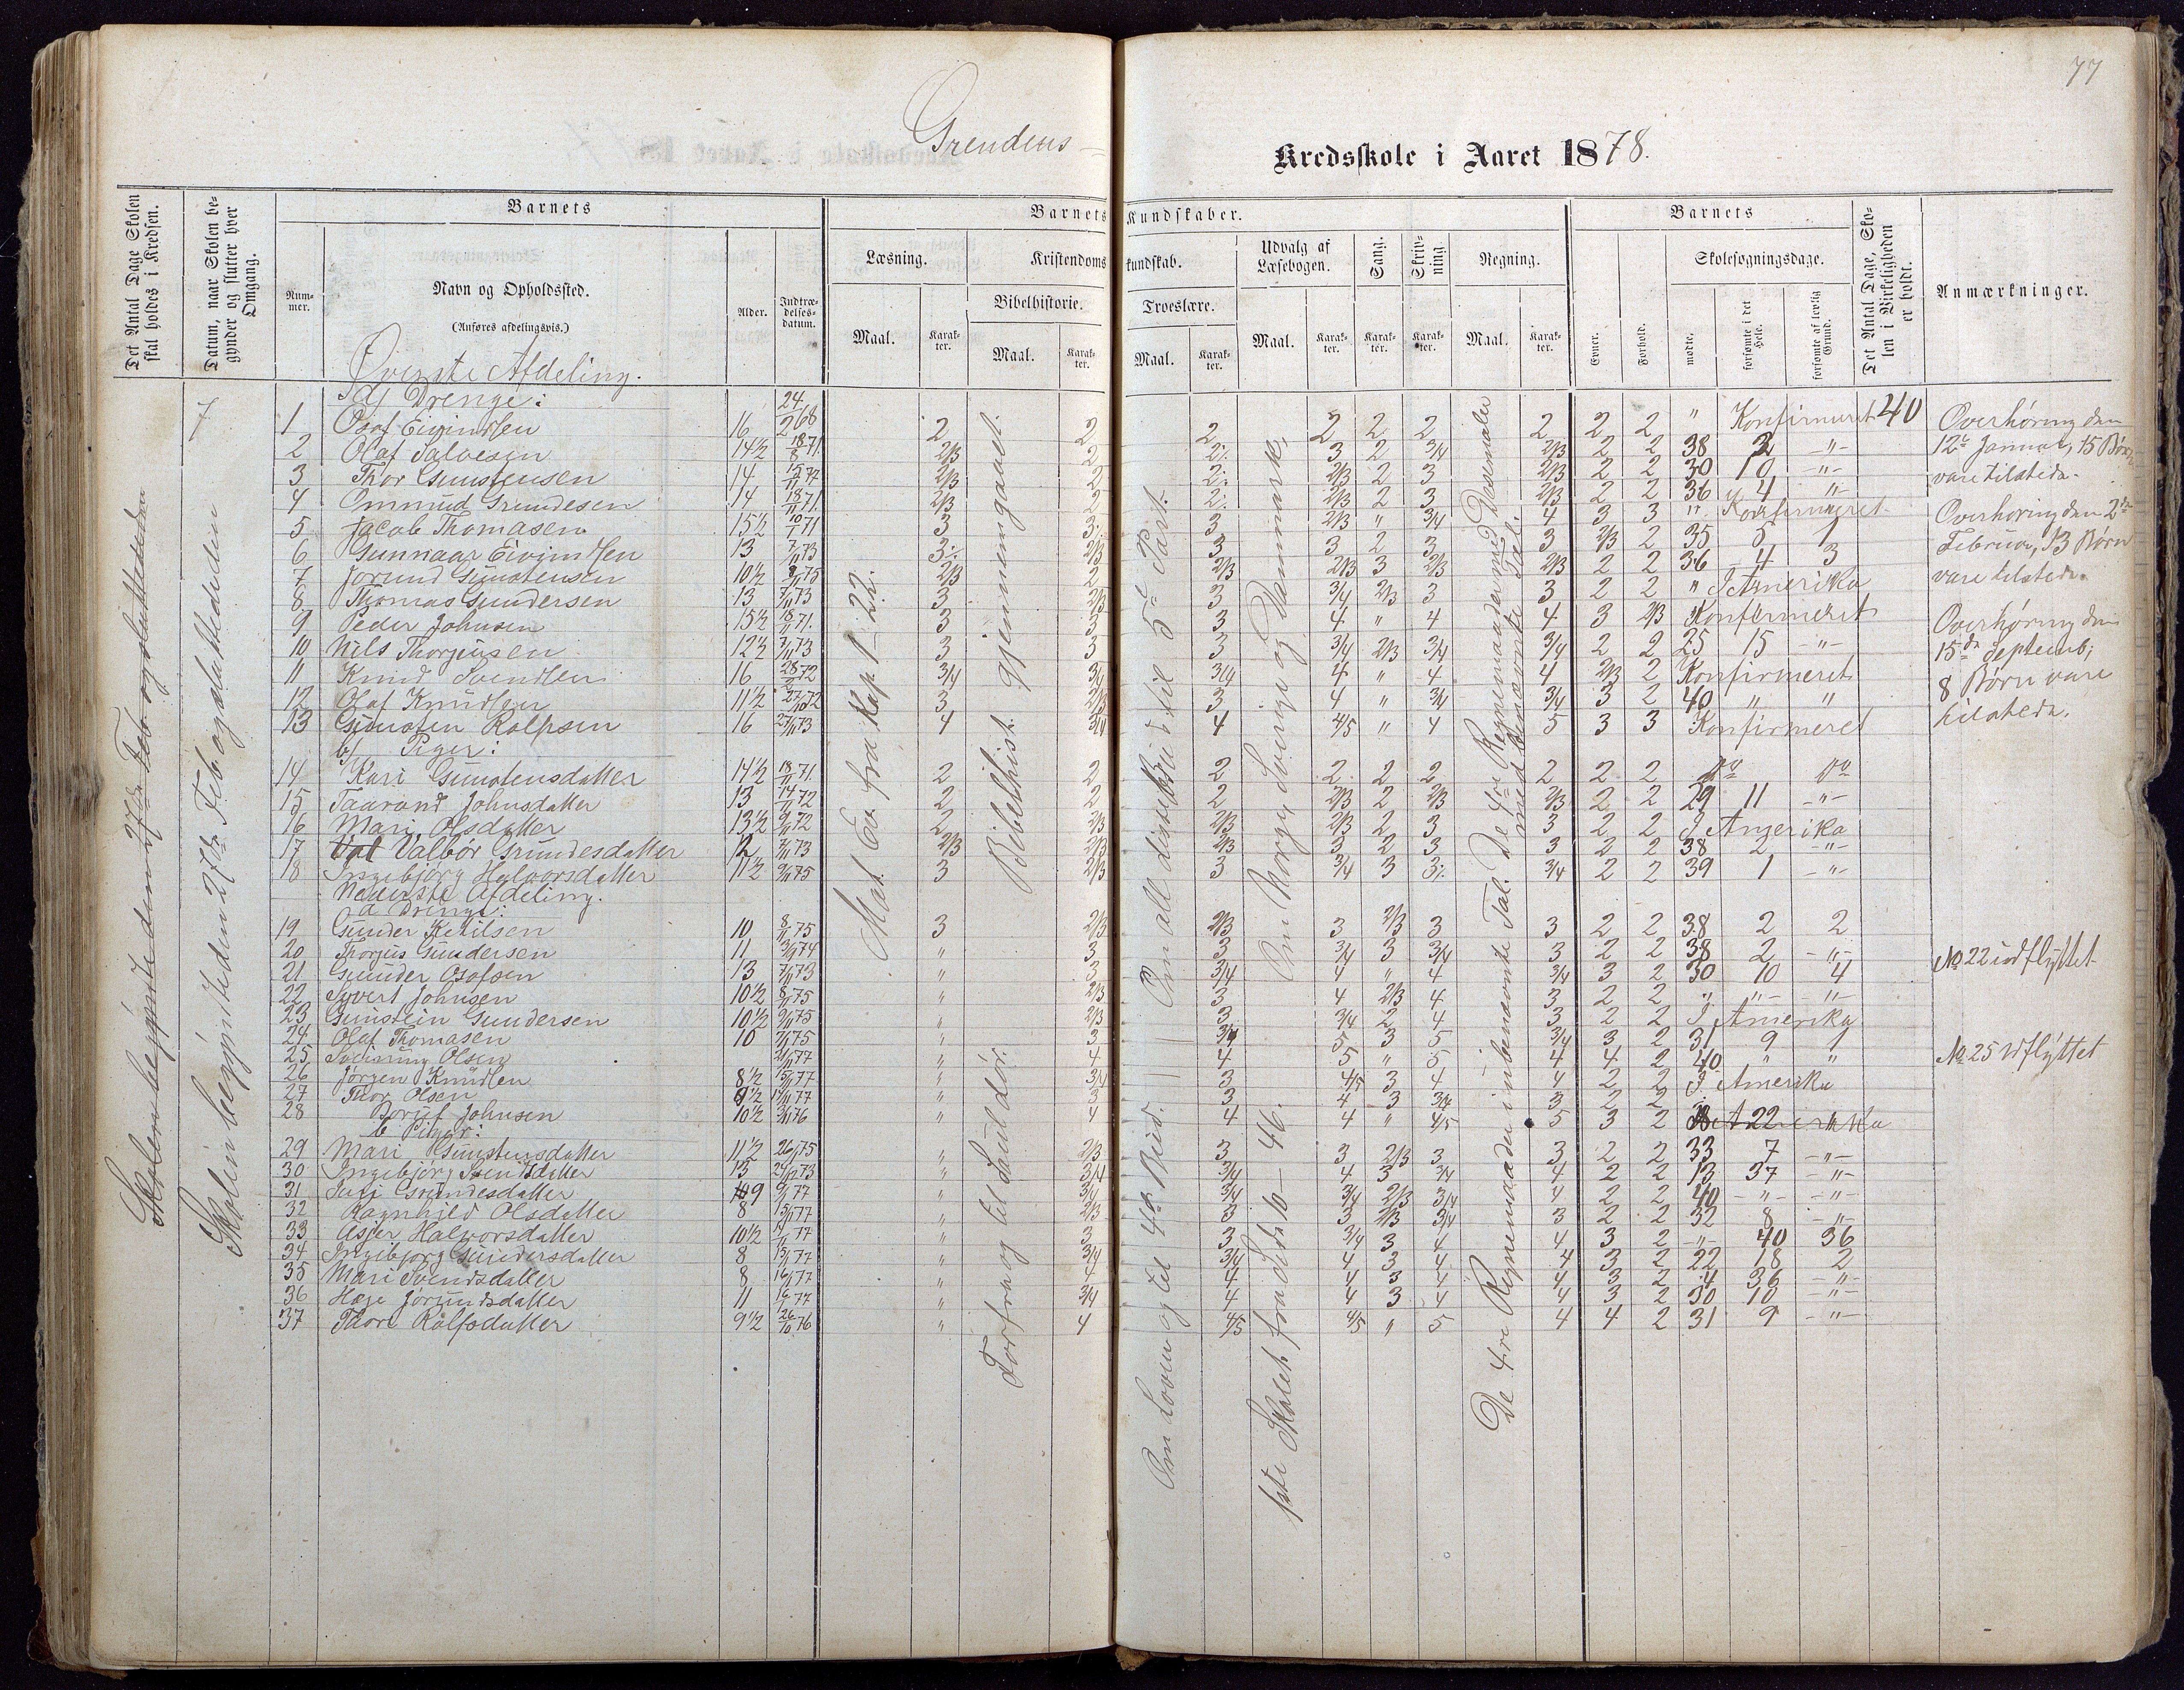 77
Grendens Kredsskole i Aaret 1878.
Det Antal Dage Skolen skal holdes i Kredsen.
Datum, naar Skolen begynder og slutter hver Omgang.
Barnets
Nummer.
Navn og Opholdssted.
(Anføres afdelingsvis.)
Alder.
Indtrædelsesdatum.
Barnets Kundskaber.
Læsning.
Maal.
Karakter.
Kristendomskundskab.
Bibelhistorie.
Maal.
Karakter.
Troeslære.
Maal.
Karakter.
Udvalg af Læsebogen.
Maal.
Karakter.
Sang.
Karakter.
Skrivning.
Karakter.
Regning.
Maal.
Karakter.
Barnets
Evner.
Forhold.
Skolesøgningsdage.
mødte.
forsømte i det Hele.
forsømte af lovlig Grund.
Det Antal Dage, Skolen i Virkeligheden er holdt.
Anmærkninger.
Skolen begyndte den 27de Feb og sluttede den
Skolen begyndte den 27de Feb og sluttede den
Øverste Afdeling.
a) Drenge:
1 Osof Eivindsen 16 24/2 68 2 2 2 2 2 2 2 2 2 " Konfirmeret 40
2 Olaf Salvesen 14½ 18/8 71 2/3 2 2 3 2 3/4 2/3 2 2 38 2 -"-
3 Thor Gunstensen 14 2/3 2 2 2/3 2 3 2/3 2 2 30 10 -"-
4 Ommud Grundesen 14 18/11 71 2/3 2 2 2/3 2 3 2/3 2 2 36 4 "
5 Jacob Thomasen 15½ 10/1 71 3 3 3 2/3 " 3/4 4 3 3 " Konfirmeret
6 Gunnaar Eivindsen 13 7/11 73 3 2/3 3 3 2 3 3 2/3 2 35 5 1
7 Jorund Gunstensen 10½ 2/3 2 2/3 2/3 3 2/3 2/3 2 2 36 4 3
8 Thomas Gundersen 13 7/11 73 3 2/3 3 3/4 2/3 3 3 2 2 " I Amerika
9 Peder Johnsen 15½ 18/11 71 3 3 3 4 " 4 4 3 2/3 " Konfirmeret
10 Nils Thorjusen 12½ 7/11 73 3 3 3 3/4 2/3 3/4 3/4 2 2 25 15 -"-
11 Knud Svendsen 16 28/2 72 3/4 3/4 3/4 4 " 4 4 2/3 2 Konfirmeret
12 Olaf Knudsen 11½ 3 2/3 3 4 " 3/4 3/4 3 2 40 " "
13 Gunsten Rolfsen 16 27/11 73 4 3/4 4 4/5 " 4 5 3 3 Konfirmeret
b) Piger:
14 Kari Gunstensdatter 14½ 18/11 71 2 2 2 2 2 2 2 2 2 do do
15 Taarand Johnsdatter 13 14/11 72 2 2 2 2/3 2 2/3 2/3 2 2 29 11 -"-
16 Mari Olsdatter 13½ 9/11 72 2 2/3 2/3 2/3 2 3 3 2 2 I Amerika
17 Valbór Grundesdatter 12 7/11 73 2/3 2/3 2/3 3 2 3 3 2 2 38 2 -"-
18 Ingebjörg Halvorsdatter 11½ 9/11 75 3 2/3 3 3/4 3 3 3/4 2 2 39 1 -"-
Nederste Afdeling.
a Drenge:
19 Gunder Ketilsen 10 8/11 75 3 2/3 2/3 3 2/3 3 3 2 2 38 2 2
20 Thorjus Gundersen 11 " 3 3 3/4 3 3/4 3 2 2 38 2 -"-
21 Gunder Osofsen 13 7/11 73 " 3 3/4 4 " 4 3/4 3 2 30 10 4
22 Syvert Johnsen 10½ 8/11 75 " 2/3 3 4 2/3 4 3 2 2 " -"- -"-
23 Gunstein Gundersen 10½ 9/11 75 " 2/3 3 3/4 2 4 3 2 2 I Amerika
24 Olaf Thomasen 10 7/11 75 " 3 3/4 5 3 5 3/4 3 2 31 9 1
25 Olsen " 4 4 5 " 5 4 4 2 40 " "
26 Jörgen Knudsen 8½ " 3/4 3 4/5 3 4 4 2 2 I Amerika
27 Thor Olsen 9½ " 3 3 4 3 3/4 3 2 2
28 Boruf Johnsen 10½ " 4 4 4 " 4/5 5 3 2
b Piger:
29 Mari Gunstensdatter 11½ " 2/3 3 3 2/3 3 3 2 2 33 7 -"-
30 Ingebjörg Svendsdatter 13 " 3/4 3/4 4 3 3/4 4 2 2 13 37 -"-
31 Grundesdatter 9 " 3/4 3/4 3/4 2/3 3/4 4 2 2 40 -"- -"-
32 Ragnhild Olsdatter 8 " 2/3 3 3 2/3 3/4 3 2 2 32 8 -"-
33 Asjer Halvorsdatter 10½ " 3 3 3/4 3 4 4 3 2 -"- 40 36
34 Ingebjorg Gundersdatter 8 " 3/4 3/4 4 3 4 4 3 2 22 18 2
35 Mari Svendsdatter 8 " 4 4 4 3 4 4 3 2 4 36 -"-
36 Hæge Jörundsdatter 11 " 3/4 4 4 3 4 4 3 2 30 10 -"-
37 Thore Rolfsdatter 9½ 26/10 76 " 4 4/5 4/5 " 5 4 4 2 31 9 -"-
Mat. Ev. fra Kap. 1 - 22.
Bibelhist. gjennemgaaet.
Forfra og til Sauls död.
Om alle disse Bud til 5te Part.
Om Loven og til 4de Bud.
Om Norge, Sverige og Danmark.
1ste Skolet. fra Side 10 - 46.
De 4re Regnemaader med Desemaler
med benævnte Tal.
De 4re Regnemaader i ubenævnte Tal.
Overhøring den
12te Januar, 15 Børn
vare tilstede.
Overhøring den 2den
Februar, 13 Børn
vare tilstede.
Overhøring den
15de Septemb;
8 Børn vare
tilstede.
No 22 udflyttet
No 25 udflyttet